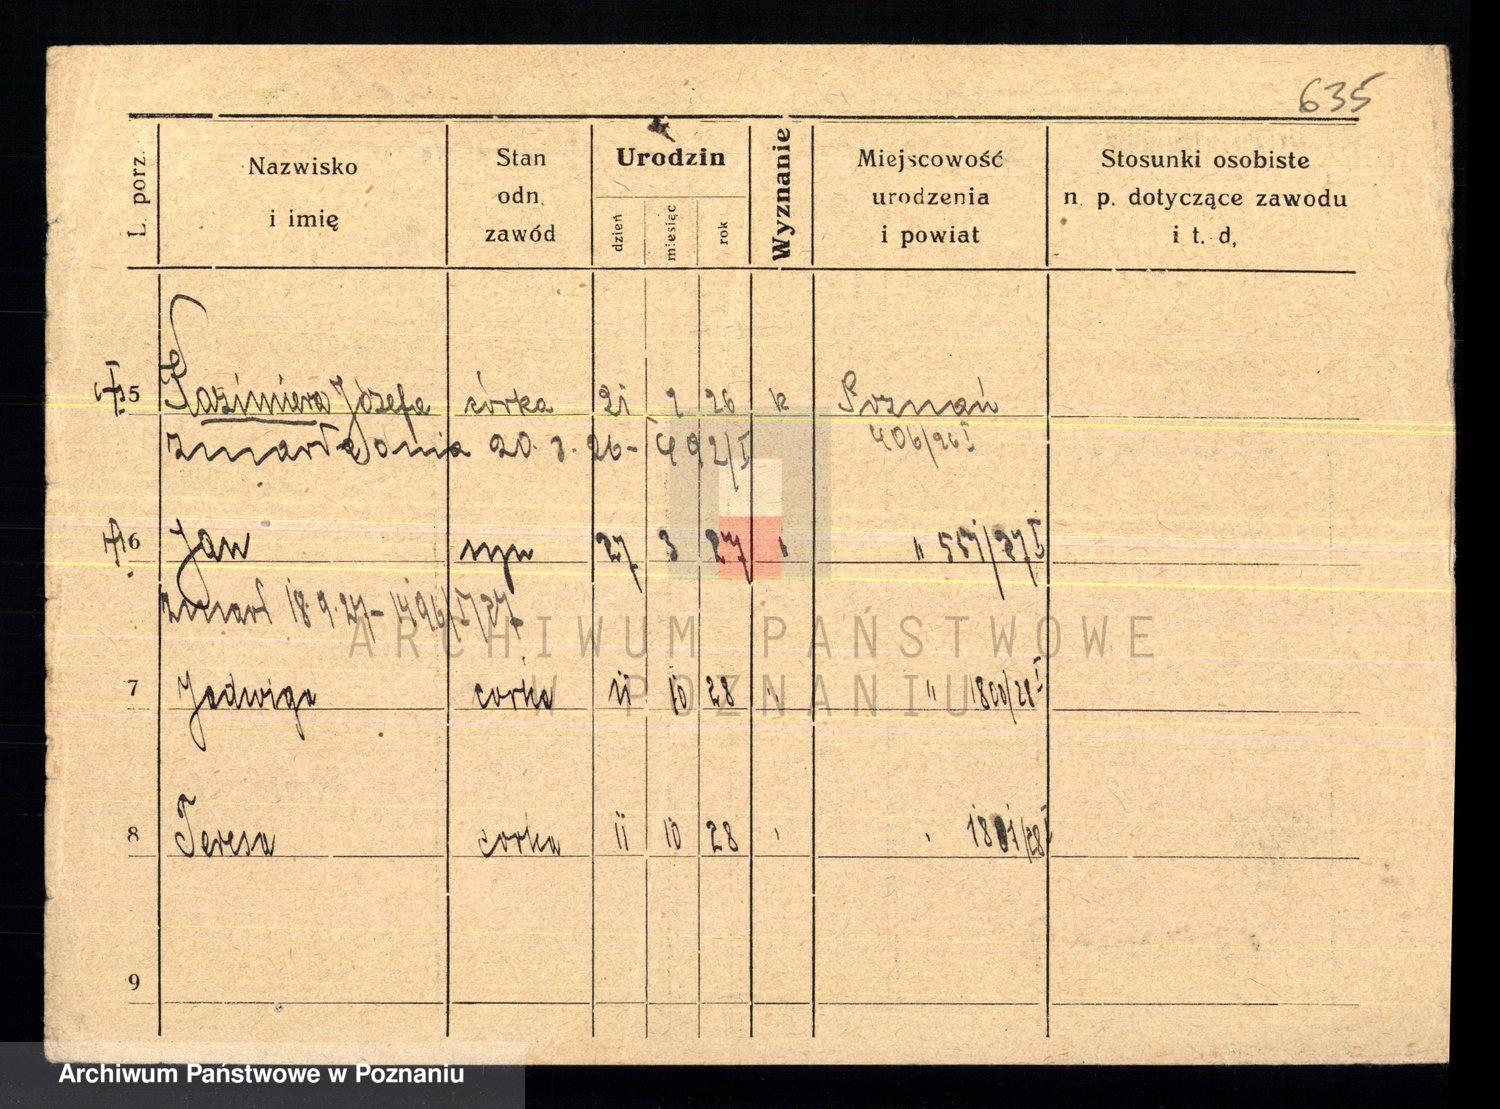 635
L. porz. Nazwisko i imię Stan odn. zawód Urodzin dzień miesiąc rok Wyznanie Miejscowość urodzenia i powiat Stosunki osobiste n. p. dotyczące zawodu i t. d.
5 Kazimiera Józefa córka 21 2 26 k Poznań
zmarła dnia 20. 3. 26 - 492/I 406/26 I
6 Jan syn 27 3 27 " " 551/27 I
zmarł 18. 9. 27 - 1496/I/27
7 Jadwiga córka 11 10 28 " " 1800/28 I
8 Teresa córka 11 10 28 " " 1801/28 I
9
ARCHIWUM PAŃSTWOWE
W POZNANIU
Archiwum Państwowe w Poznaniu